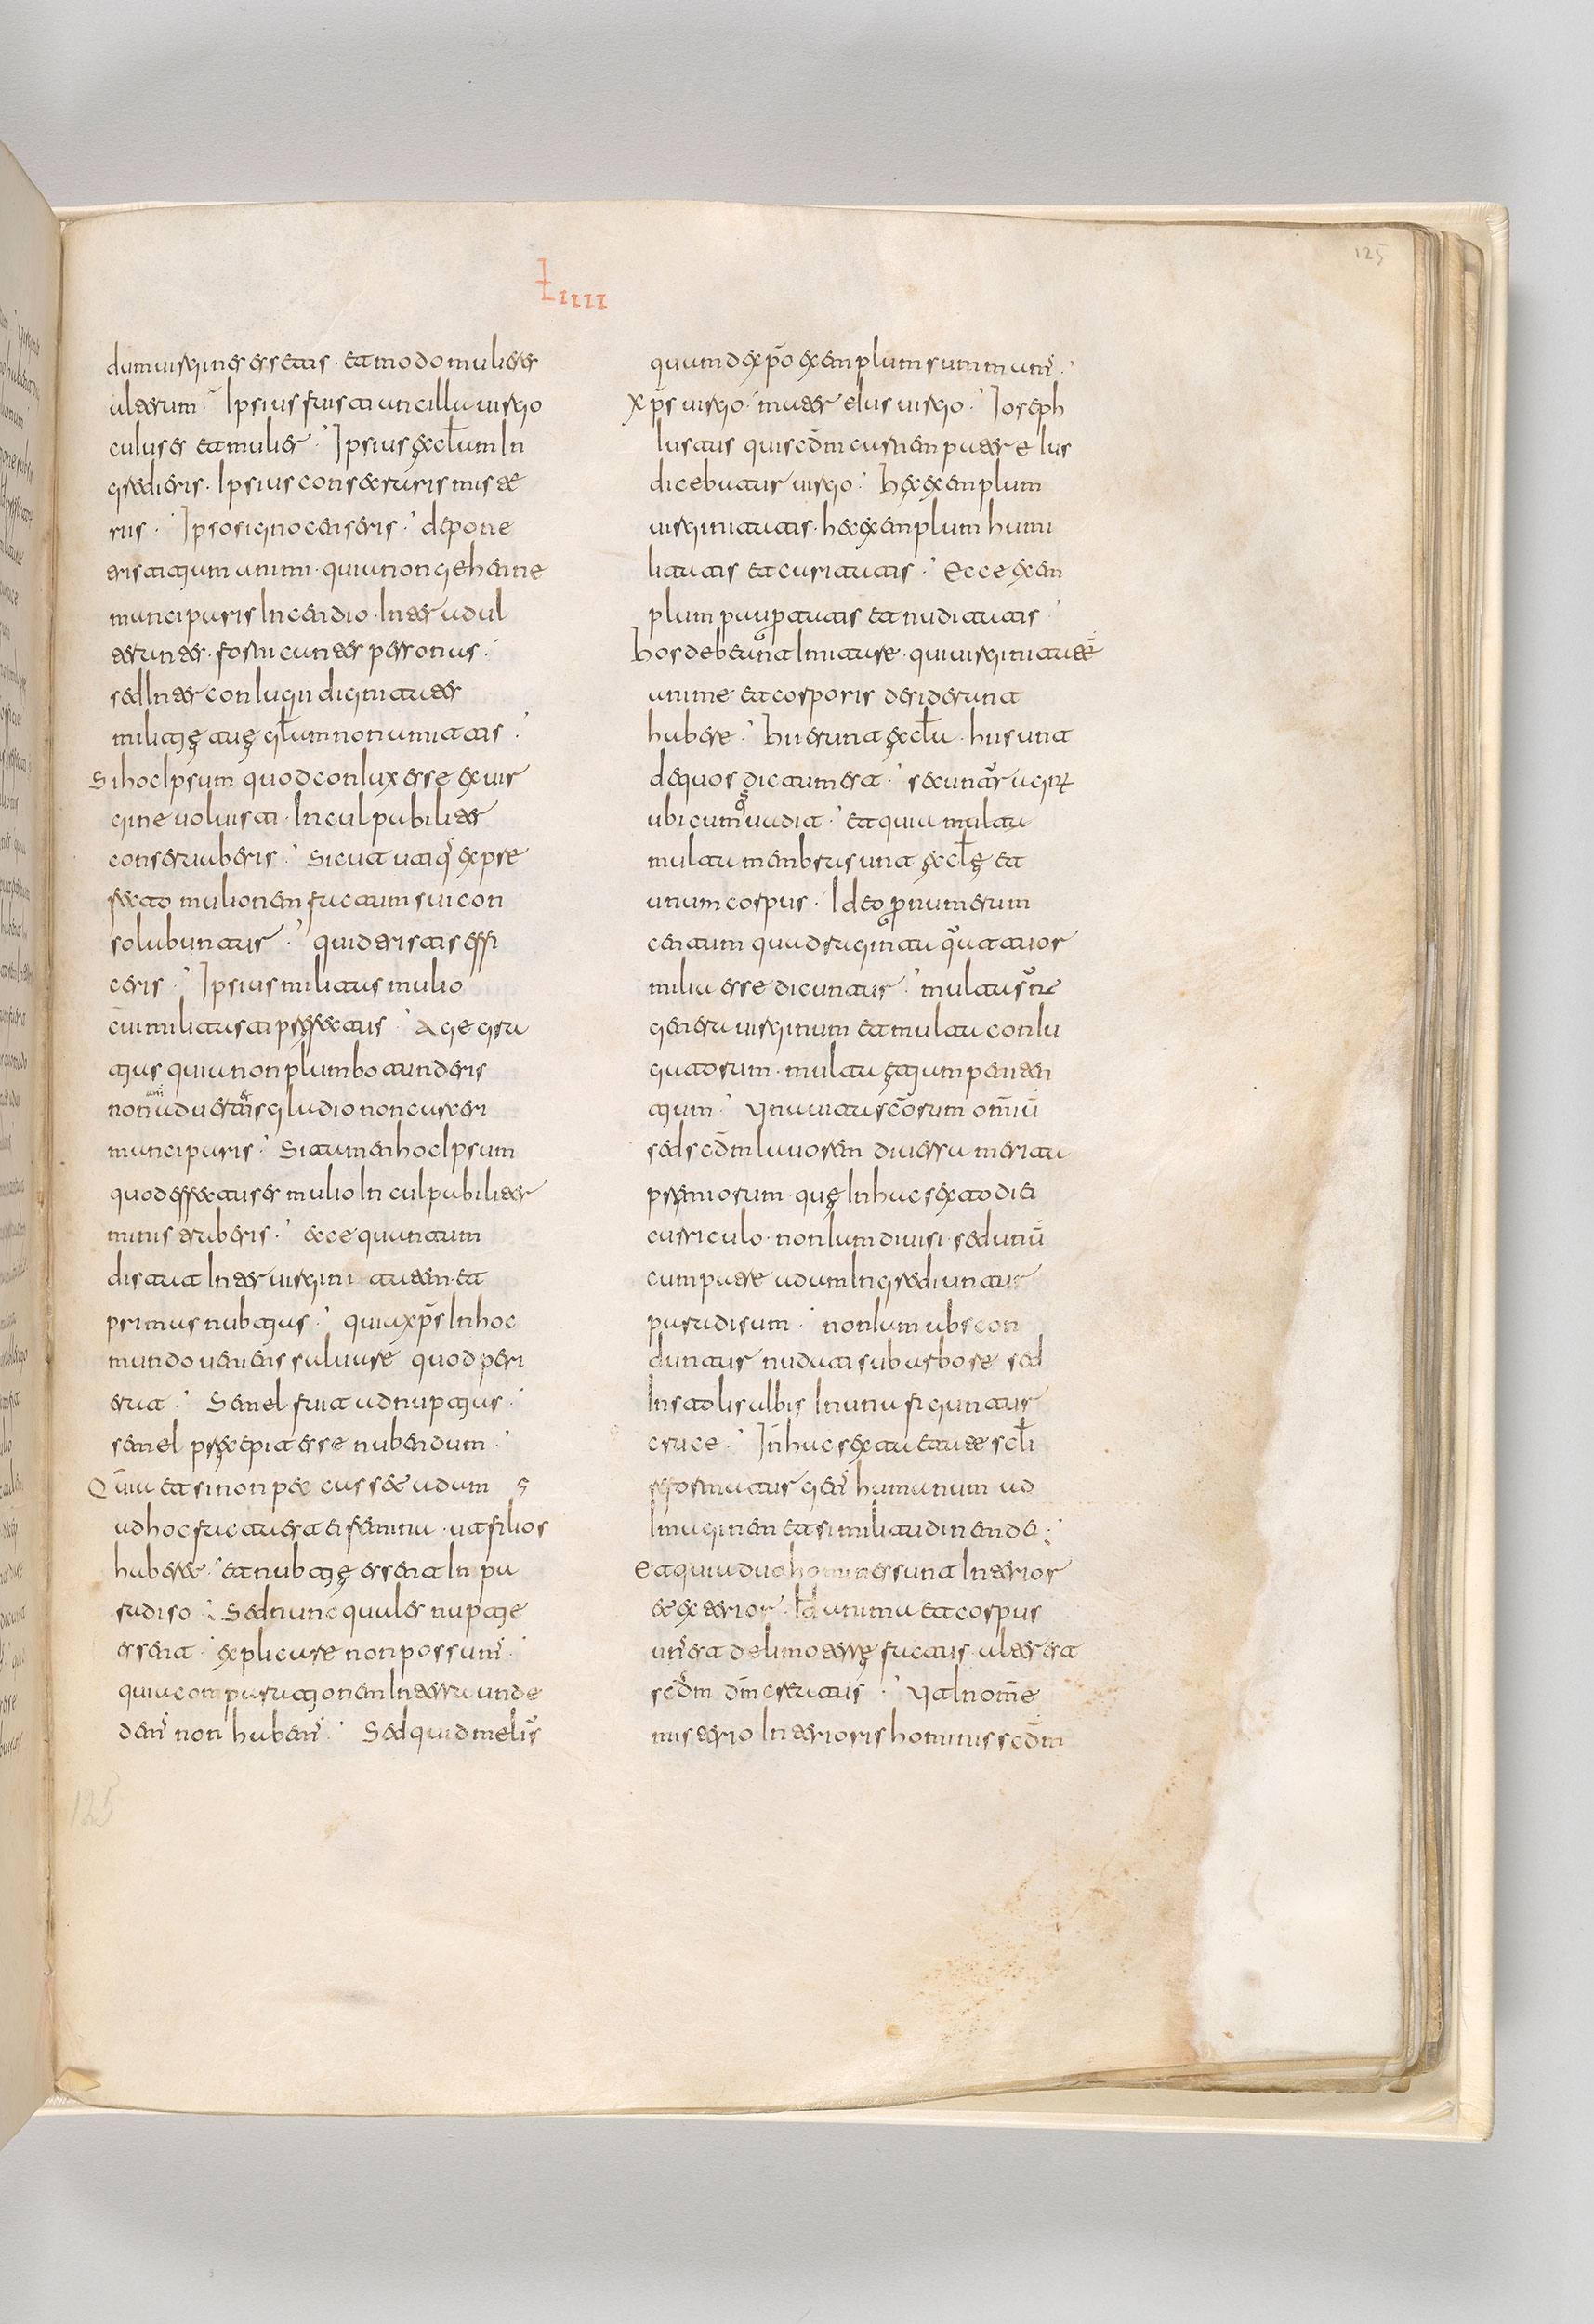 Liiii
dum uirgines essetis · et modo mulieres
alterum · Ipsius fuisti ancilla uirgo
cuius es et mulier · Ipsius ęclam In
grederis · Ipsius consecraris miste
riis · Ipso signo censeris · depone
tristitiam animi · quia non gehenne
manciparis Incendio · Inter adul
terantes · fornicantes personas ·
sed Inter coniugii dignitates
militię tuę glam non amittis ·
Si hoc Ipsum quod coniux esse ex uir
gine uoluisti · Inculpabiliter
conseruaberis · Sicut utiq; ex pre
fecto mulionem factum sui con
solabantur · quid tristis effi
ceris · Ipsius militas mulio
cui militasti pręfectus · Age gra
tias quia non plumbo tunderis
non aduersantis gladio non carceri
manciparis · Si tamen hoc Ipsum
quod effectus es mulio Inculpabiliter
minis traberis · ecce quantum
distat Inter uirginitatem · et
primas nubtias · quia xps In hoc
mundo ueniens saluare quod peri
erat · Semel fuit ad nuptias ·
semel pręcepit esse nubendum ·
Quia et si non peccasset adam
ad hoc facta erat ei femina · ut filios
haberet · et nubtię essent In pa
radiso · Sed nunc quales nuptie
essent · explicare non possum; ·
quia comparationem In terra unde
dem; non habem; · Sed quid melius
quam de xpo exemplum summam; ·
Xps uirgo · mater eius uirgo · Ioseph
Iustus qui scdm carnem pater eius
dicebatur uirgo · Hec exemplum
uirginitatis · hec exemplum humi
litatis et caritatis · Ecce exem
plum paupertatis et nuditatis ·
Hos debent Imitare · qui uirginitatē
anime et corporis desiderant
habere · Hii erunt ęcla · hii sunt
de quos dictum est · secuntur agn
ubicumq; uadit · et quia multa
multa menbra sunt ęclę et
unum corpus · Ideo per numerum
centum quadraginta quattuor
milia esse dicuntur · multa sunt
genera uirginum et multa coniu
gatorum · multa ętiam peniten
tium · Una uita scorum omniū
sed scdm laborem diuersa merita
pręmiorum · quę In hac sexto diei
curriculo · non iam diuisi · sed unū
cum patre adam Ingrediuntur
paradisum · non iam abscon
duntur nudati sub arbore sed
In stolis albis In una figuntur
cruce · In hac sexta etate scli
reformatur gen; humanum ad
Imaginem et similitudinem dei ·
Et quia duo homines sunt Interior
et exterior · Id anima et corpus
un; est de limo terrę factus · alter est
scdm dm creatus · Ut In nomne
misterio Interioris hominis scdm
125
125